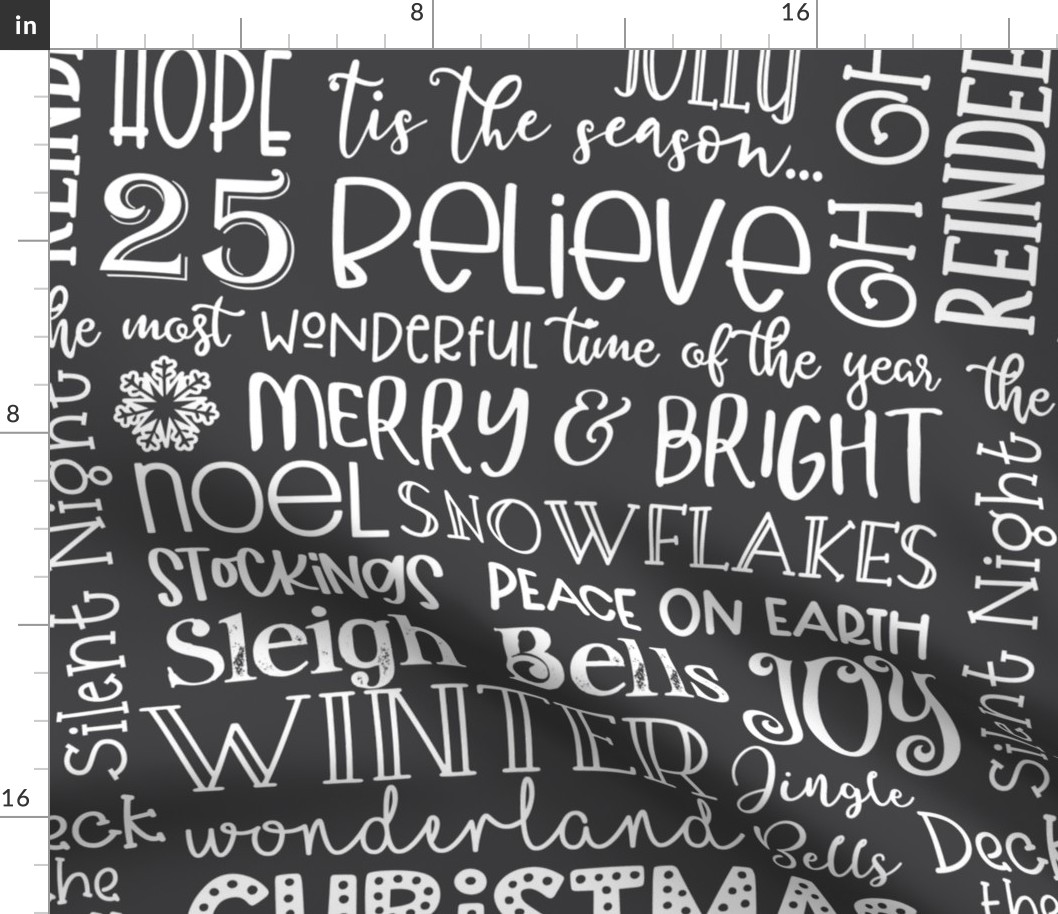 in
8
16
HOPE
'tis the season...
JOLLY
HO HO
REINDEE
REIND
25 BELiEVE
he most WONDERFUL time of the year
the
MERRY & BRIGHT
Silent Night
Silent Night
8
NOEL SNOWFLAKES
STOCKiNGS PEACE ON EARTH
Sleigh Bells
JOY
WINTER
wonderland
Jingle
Bells
16
eck
the
Deck
the
CHRiSTMAS